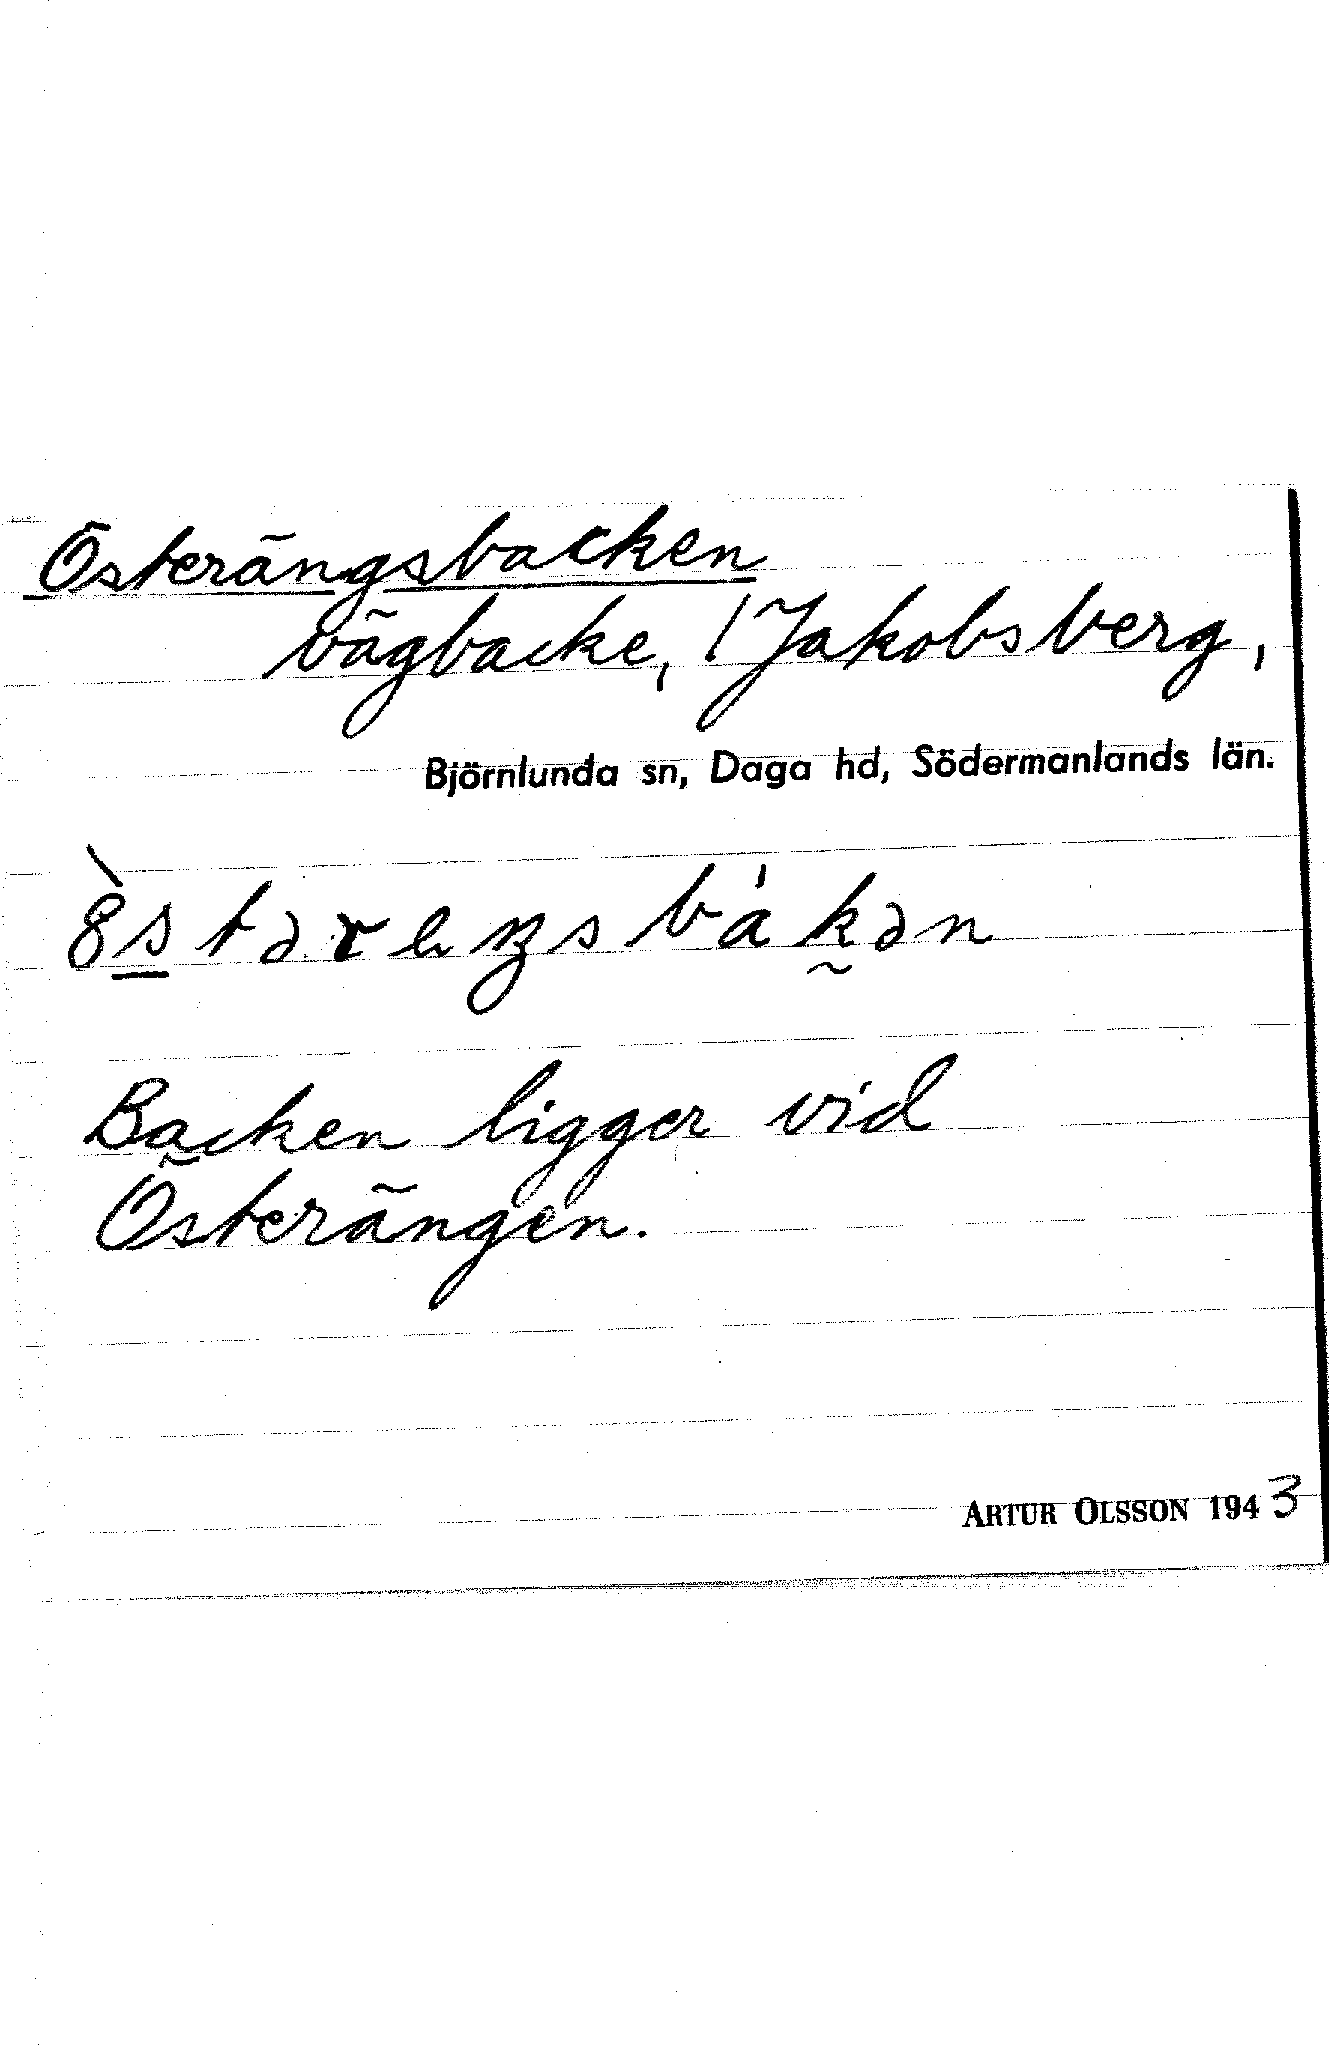 Österängsbacken
vägbacke, / Jakobsberg,
Björnlunda sn, Daga hd, Södermanlands län.
Backen ligger vid
Österängen.
ARTUR OLSSON 1943